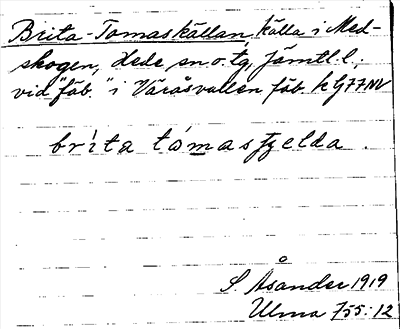 Brita-Tomaskällan, källa i Med-
skogen, Hede sn o. tg, Jämtl. l.,
vid "fäb." i Våråsvallen fäb. k Lj 77 NV
brita tómastȷelda.
S. Åsander 1919
Ulma 755:12